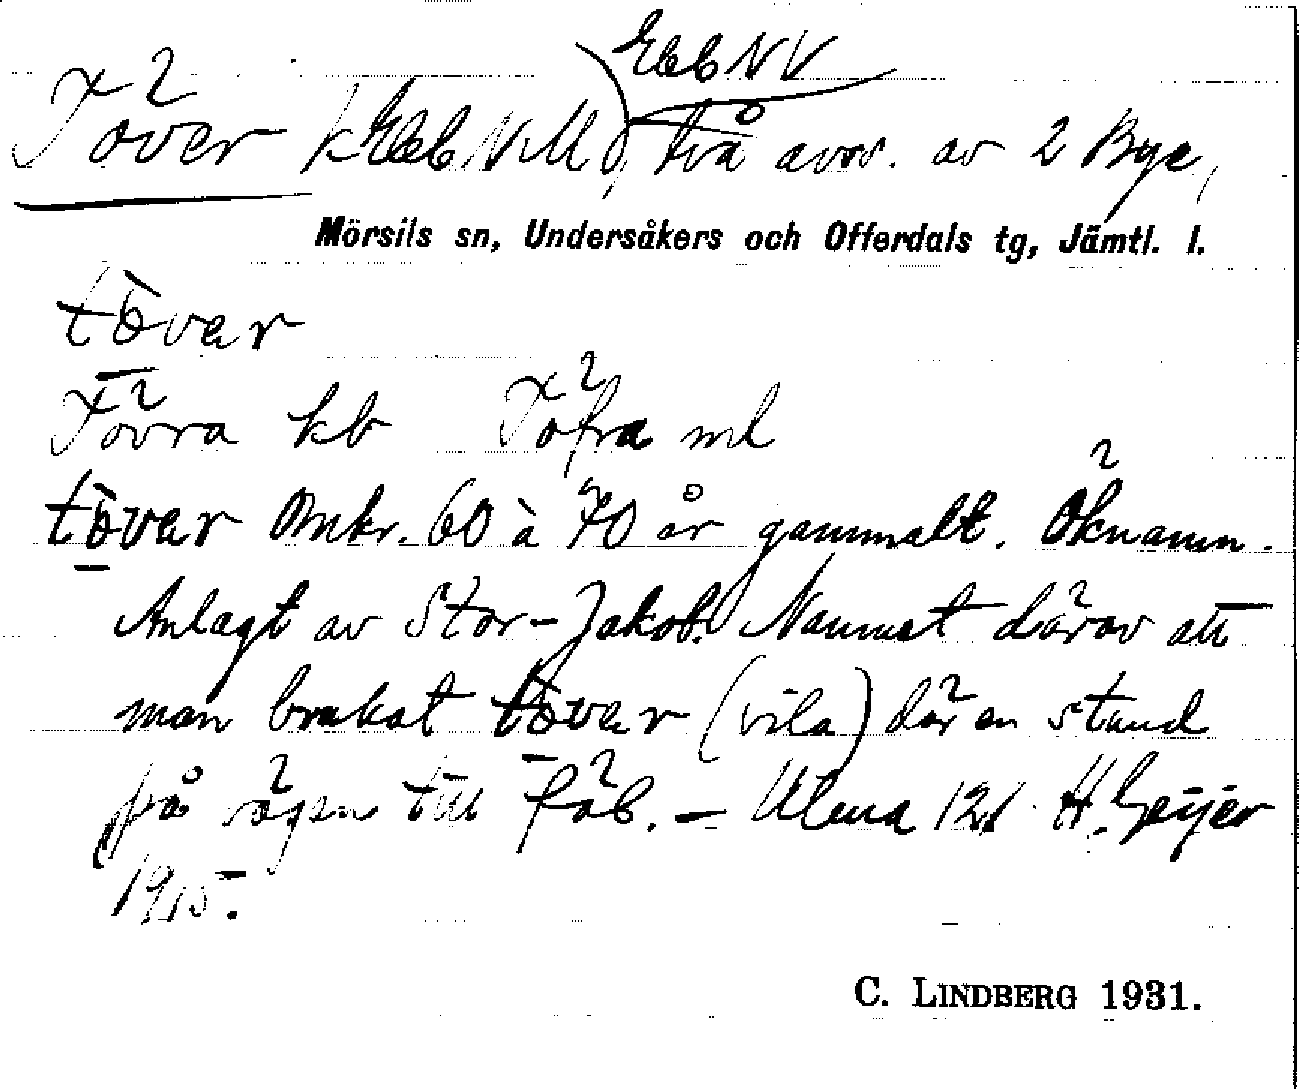 Ekb NV
Töver Ekb NM, två avsv. av 2 Bye,
Mörsils sn, Undersåkers och Offerdals tg, Jämtl. l.
tòvar
Tövra kb Töfra ml
tòvar Omkr. 60 à 70 år gammalt. Öknamn.
Anlagt av Stor-Jakob. Namnet därav att
man brukat tòvar (vila) där en stund
på vägen till fäb. — Ulma 121 H. Geijer
1915.
C. LINDBERG 1931.